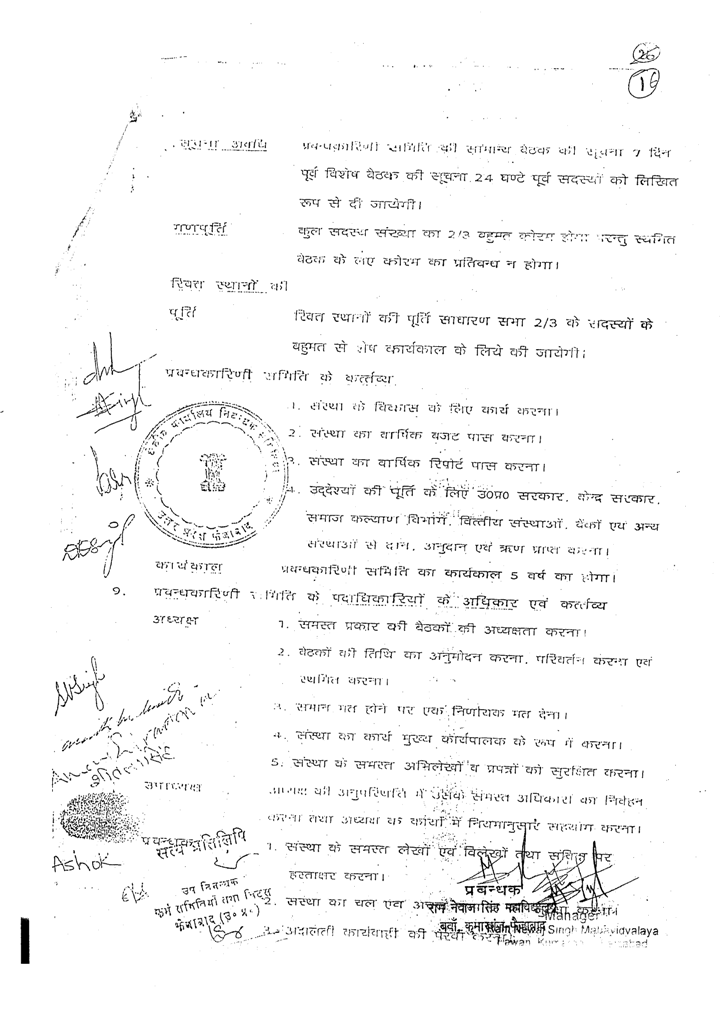 26
16
सूचना अवधि प्रबन्धकारिणी समिति की सामान्य बैठक की सूचना 7 दिन
पूर्व विशेष बैठक की सूचना 24 घण्टे पूर्व सदस्यों को लिखित
रूप से दी जायेगी।
गणपूर्ति कुल सदस्य संख्या का 2/3 बहुमत कोरम होगा परन्तु स्थगित
बैठक के लिए कोरम का प्रतिबन्ध न होगा।
रिक्त स्थानों की
पूर्ति रिक्त स्थानों की पूर्ति साधारण सभा 2/3 के सदस्यों के
बहुमत से शेष कार्यकाल के लिये की जायेगी।
प्रबन्धकारिणी समिति के कर्त्तव्य
1. संस्था के विकास के लिए कार्य करना।
2. संस्था का वार्षिक बजट पास करना।
3. संस्था का वार्षिक रिपोर्ट पास करना।
4. उद्देश्यों की पूर्ति के लिए उ0प्र0 सरकार, केन्द्र सरकार,
समाज कल्याण विभाग, वित्तीय संस्थाओं, बैंकों एवं अन्य
संस्थाओं से दान, अनुदान एवं ऋण प्राप्त करना।
कार्यकाल प्रबन्धकारिणी समिति का कार्यकाल 5 वर्ष का होगा।
9. प्रबन्धकारिणी समिति के पदाधिकारियों के अधिकार एवं कर्त्तव्य
अध्यक्ष 1. समस्त प्रकार की बैठकों की अध्यक्षता करना।
2. बैठकों की तिथि का अनुमोदन करना, परिवर्तन करना एवं
स्थगित करना।
3. समान मत होने पर एक निर्णायक मत देना।
4. संस्था का कार्य मुख्य कार्यपालक के रूप में करना।
5. संस्था के समस्त अभिलेखों व प्रपत्रों को सुरक्षित करना।
उपाध्यक्ष अध्यक्ष की अनुपस्थिति में उसके समस्त अधिकारों का निर्वहन
करना तथा अध्यक्ष के कार्यों में नियमानुसार सहयोग करना।
प्रबन्धक 1. संस्था के समस्त लेखों एवं विलेखों तथा संविदा पर
हस्ताक्षर करना।
सत्य प्रतिलिपि
Ashok
प्रबन्धक
उप निबन्धक
फर्म सोसाइटी तथा चिट्स
फैजाबाद (उ० प्र०)
2. संस्था का चल एवं
राम नेवाज सिंह महाविद्यालय
Manager
Ram Newaj Singh Mahavidyalaya
3. अदालती कार्यवाही की पैरवी करना।